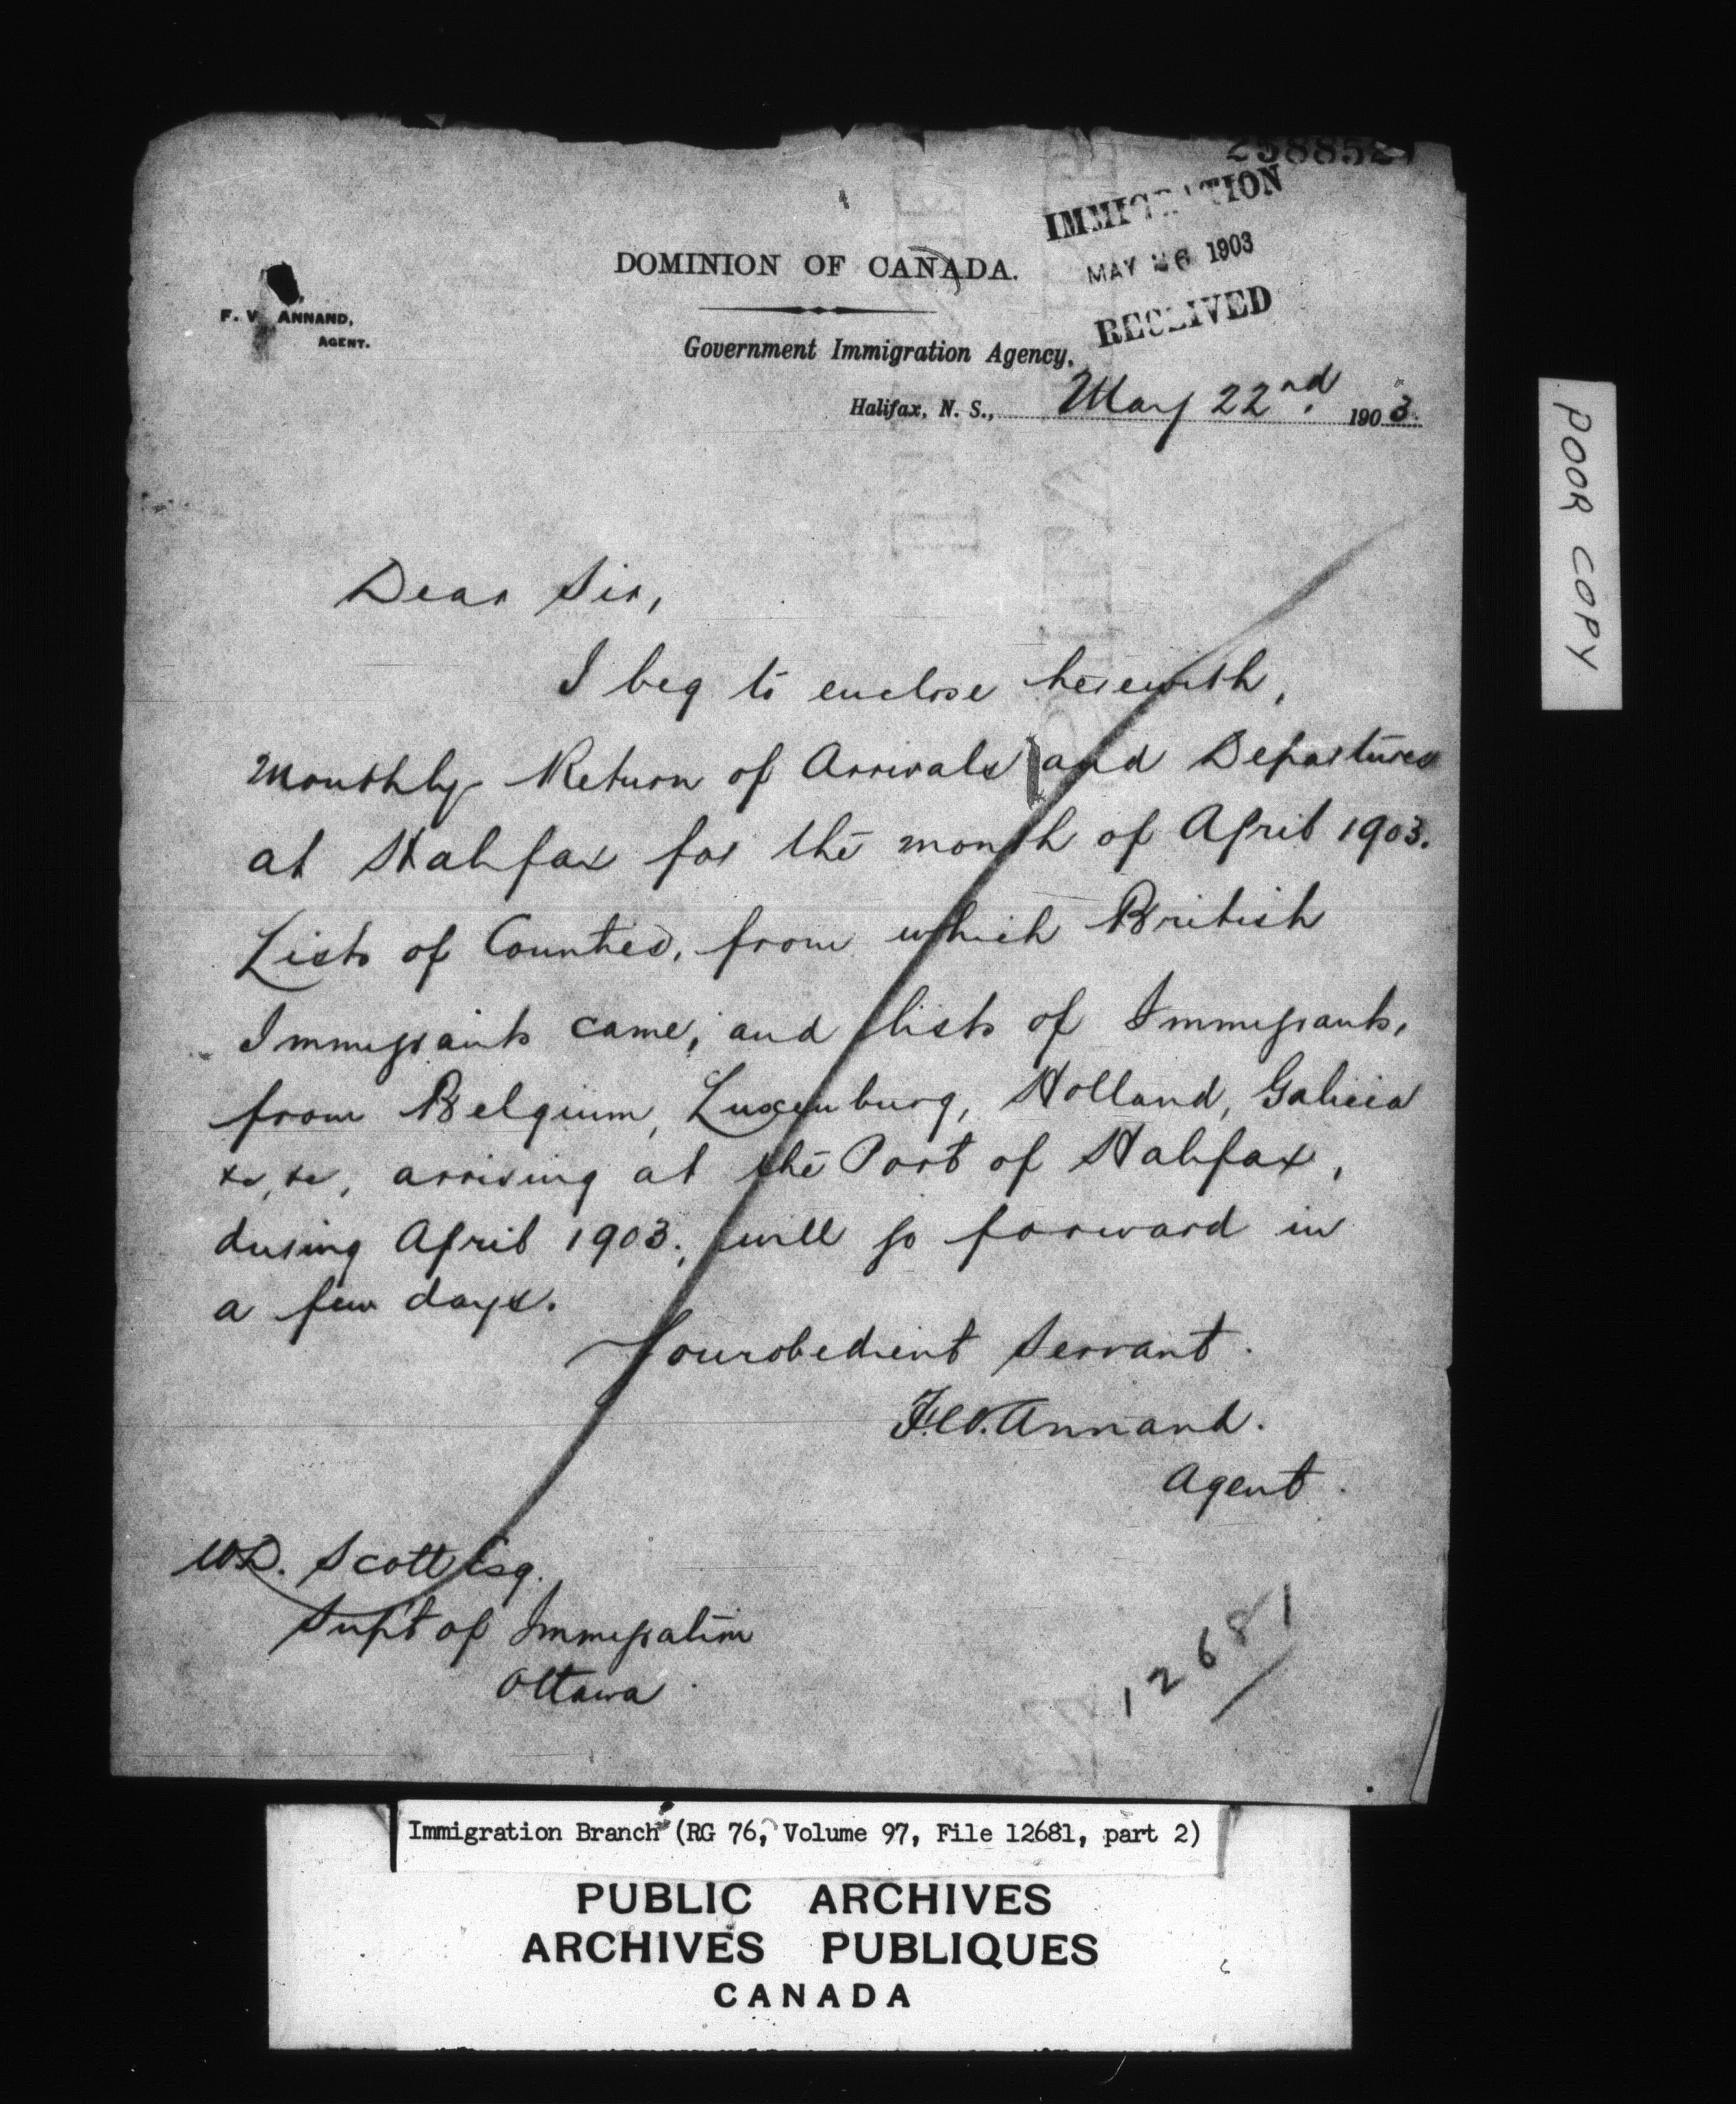 IMMIGRATION
MAY 26 1903
RECEIVED
DOMINION OF CANADA.
F. W. ANNAND,
AGENT.
Government Immigration Agency,
Halifax, N. S., May 22nd. 1903.
Dear Sir,
I beg to enclose herewith,
Monthly Return of Arrivals and Departures
at Halifax for the month of April 1903.
Lists of Counties, from which British
Immigrants came, and lists of Immigrants,
from Belgium, Luxenburg, Holland, Galicia
&c, &c, arriving at the Port of Halifax,
during April 1903, will go forward in
a few days.
Your obedient Servant.
F.W. Annand.
Agent.
W.D. Scott Esq.
Supt of Immigration
Ottawa
12681
POOR COPY
Immigration Branch (RG 76, Volume 97, File 12681, part 2)
PUBLIC ARCHIVES
ARCHIVES PUBLIQUES
CANADA